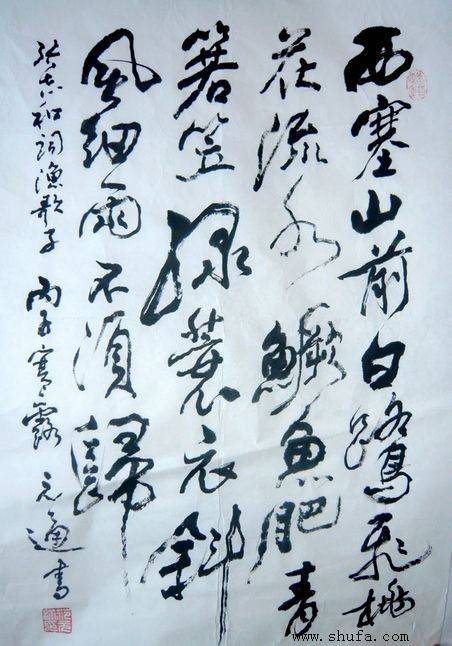 西塞山前白鷺飛桃
花流水鱖魚肥青
箬笠綠蓑衣斜
風細雨不須歸
張志和詞漁歌子 丙子寒露 元通書
www.shufa.com